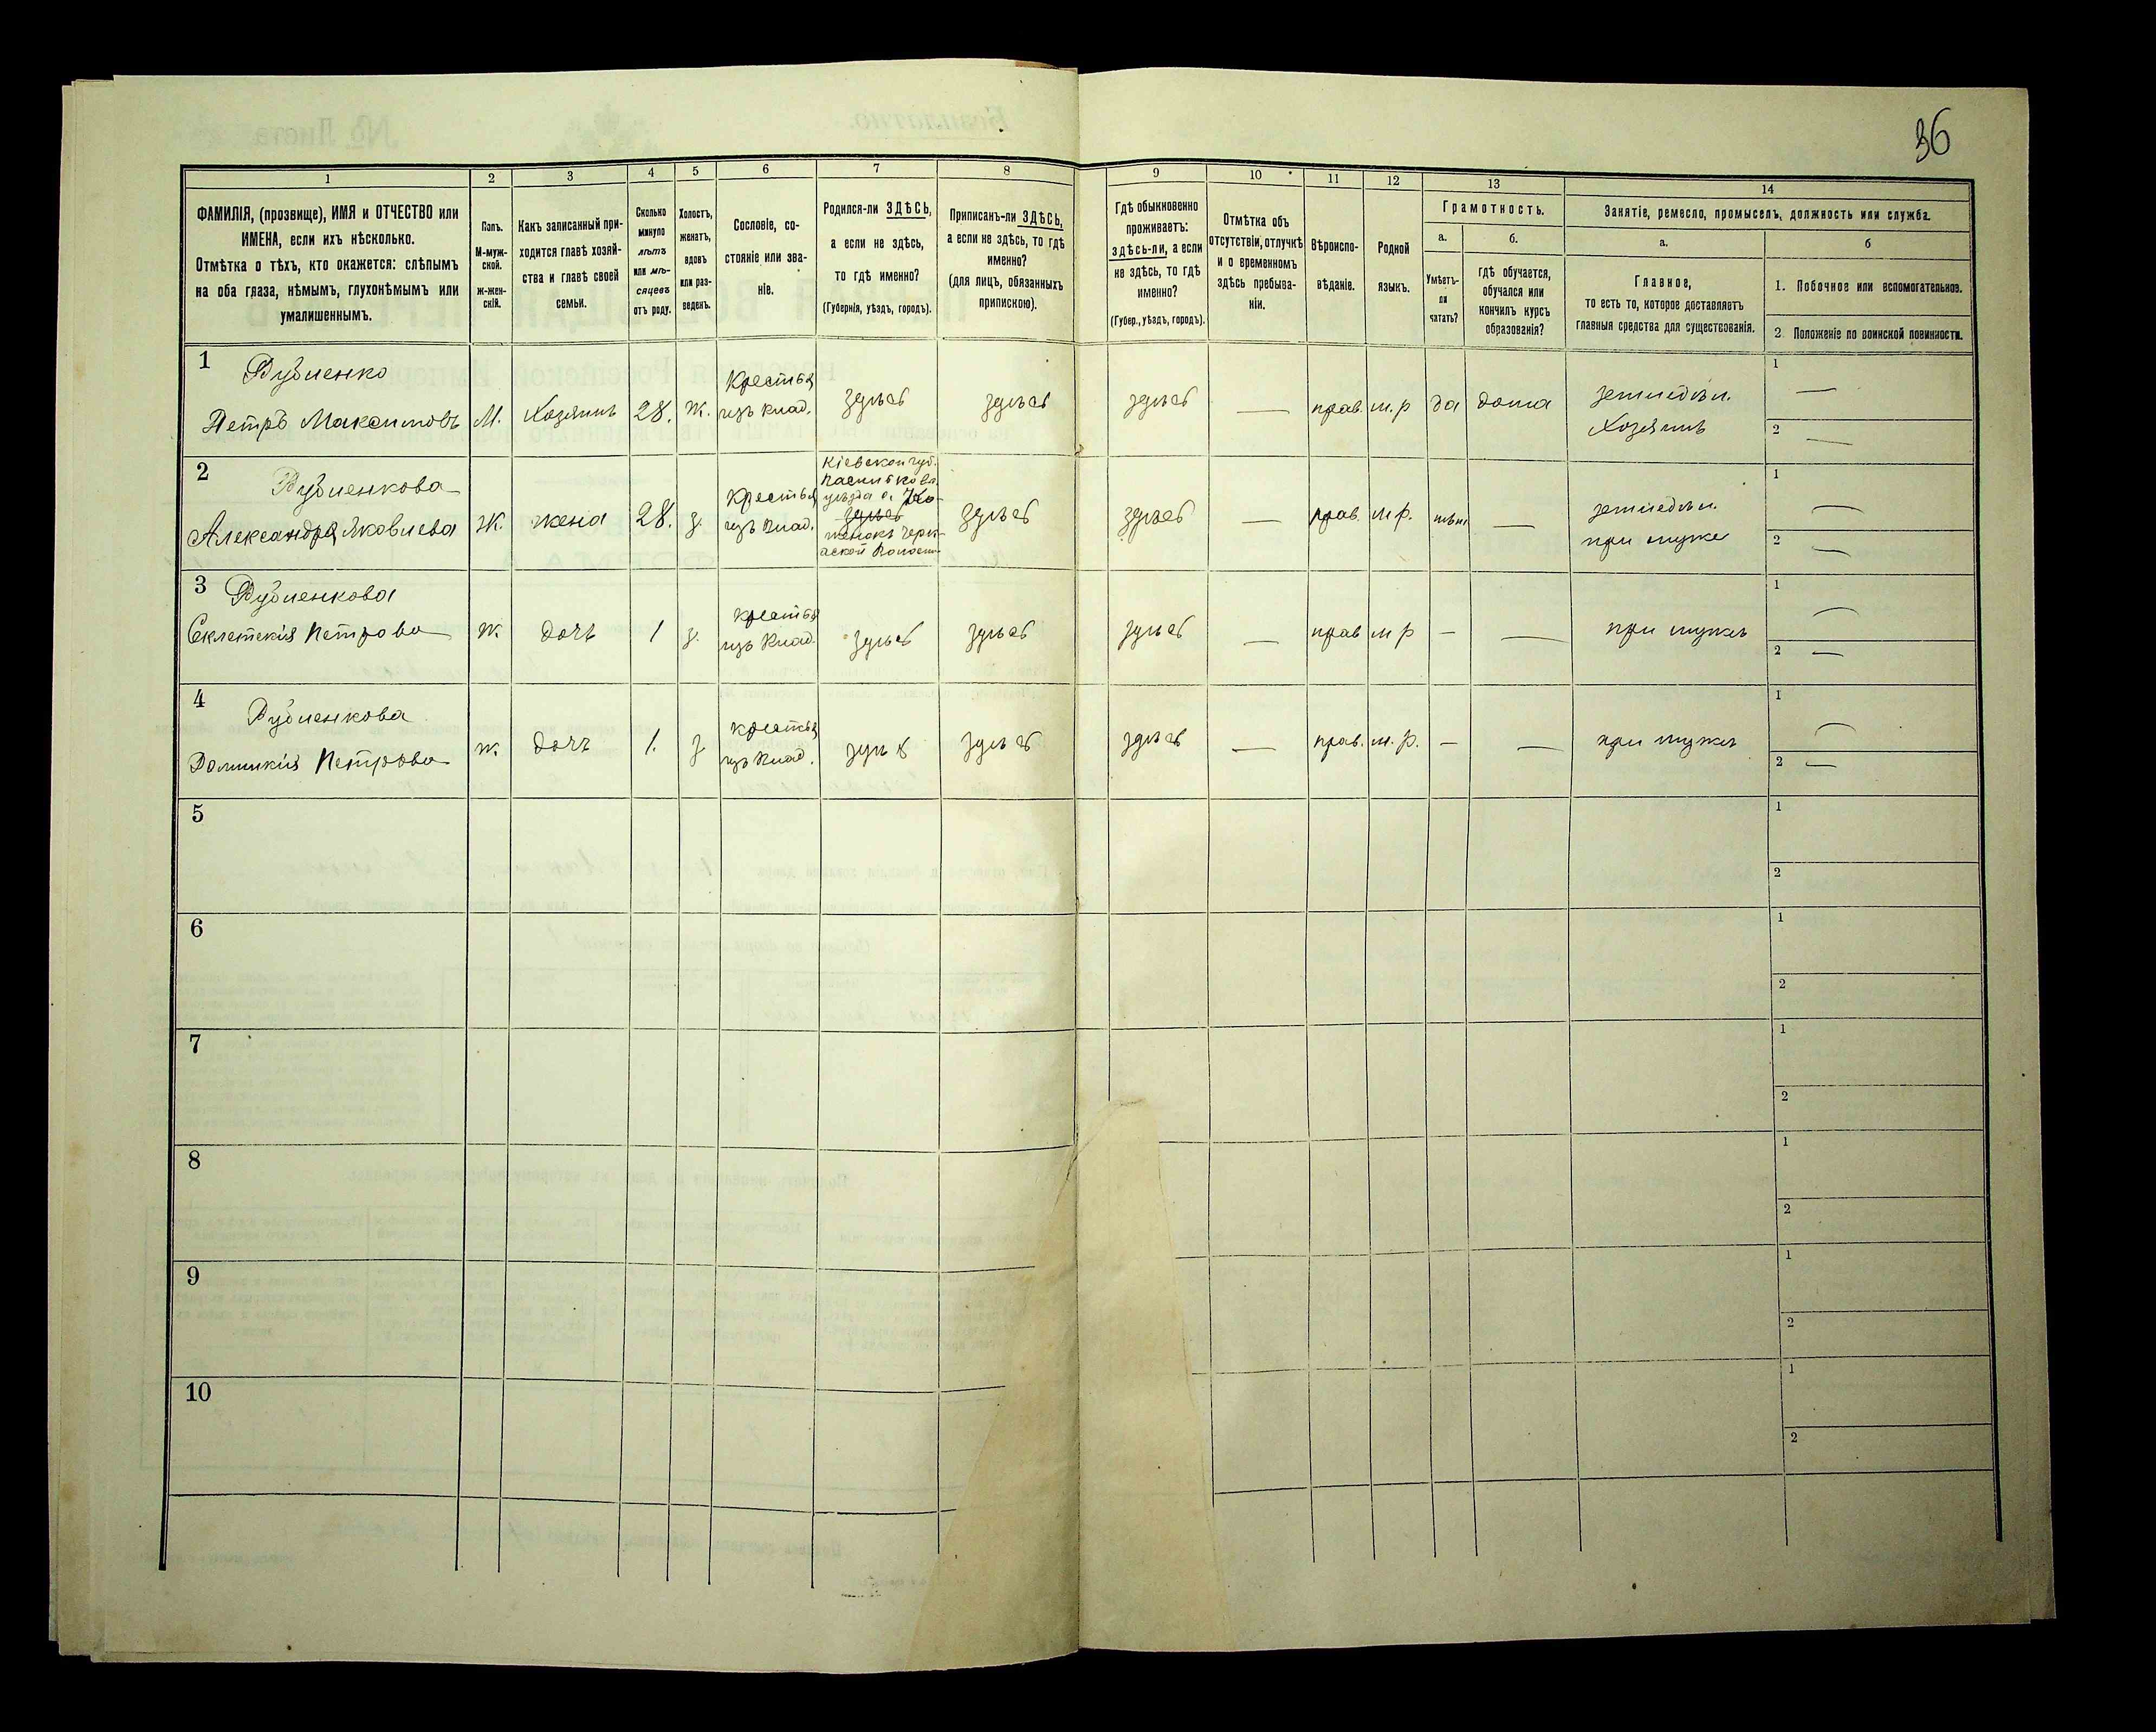 36
1 2 3 4 5 6 7 8 9 10 11 12 13 14
ФАМИЛІЯ, (прозвище), ИМЯ и ОТЧЕСТВО или
ИМЕНА, если ихъ нѣсколько.
Отмѣтка о тѣхъ, кто окажется: слѣпымъ
на оба глаза, нѣмымъ, глухонѣмымъ или
умалишеннымъ.
Полъ.
М-муж-
ской.
ж-жен-
скій.
Какъ записанный при-
ходится главѣ хозяй-
ства и главѣ своей
семьи.
Сколько
минуло
лѣтъ
или мѣ-
сяцевъ
отъ роду.
Холостъ,
женатъ,
вдовъ
или раз-
веденъ.
Сословіе, со-
стояніе или зва-
ніе.
Родился-ли ЗДѢСЬ,
а если не здѣсь,
то гдѣ именно?
(Губернія, уѣздъ, городъ).
Приписанъ-ли ЗДѢСЬ,
а если не здѣсь, то гдѣ
именно?
(для лицъ, обязанныхъ
припискою).
Гдѣ обыкновенно
проживаетъ:
ЗДѢСЬ-ли, а если
не здѣсь, то гдѣ
именно?
(Губер., уѣздъ, городъ).
Отмѣтка объ
отсутствіи, отлучкѣ
и о временномъ
здѣсь пребыва-
ніи.
Вѣроиспо-
вѣданіе.
Родной
языкъ.
Грамотность.
а.
Умѣетъ-
ли
читать?
б.
гдѣ обучается,
обучался или
кончилъ курсъ
образованія?
Занятіе, ремесло, промыселъ, должность или служба.
а.
Главное,
то есть то, которое доставляетъ
главныя средства для существованія.
б
1. Побочное или вспомогательное.
2. Положеніе по воинской повинности.
1
Петръ Максимовъ
М.
Хозяинъ
28.
Ж.
Крестья
изъ влад.
здѣсь
здѣсь
здѣсь
—
прав.
м.р
да
дома
земледѣл.
Хозяинъ
1 —
2 —
2
Александра Яковлева
Ж.
жена
28.
з.
Крестья
изъ влад.
Кіевской губ.
уѣзда с.
здѣсь
здѣсь
здѣсь
—
прав.
м р.
—
земледѣл.
при мужѣ
1 —
2 —
3
Петрова
Ж.
дочь
1
з.
крестья
изъ влад.
здѣсь
здѣсь
здѣсь
—
прав
м р
—
—
при мужѣ
1 —
2 —
4
Петрова
ж.
дочь
1.
з
крестья
изъ влад.
здѣсь
здѣсь
здѣсь
—
прав.
м. р.
—
—
при мужѣ
1 —
2 —
5
1
2
6
1
2
7
1
2
8
1
2
9
1
2
10
1
2